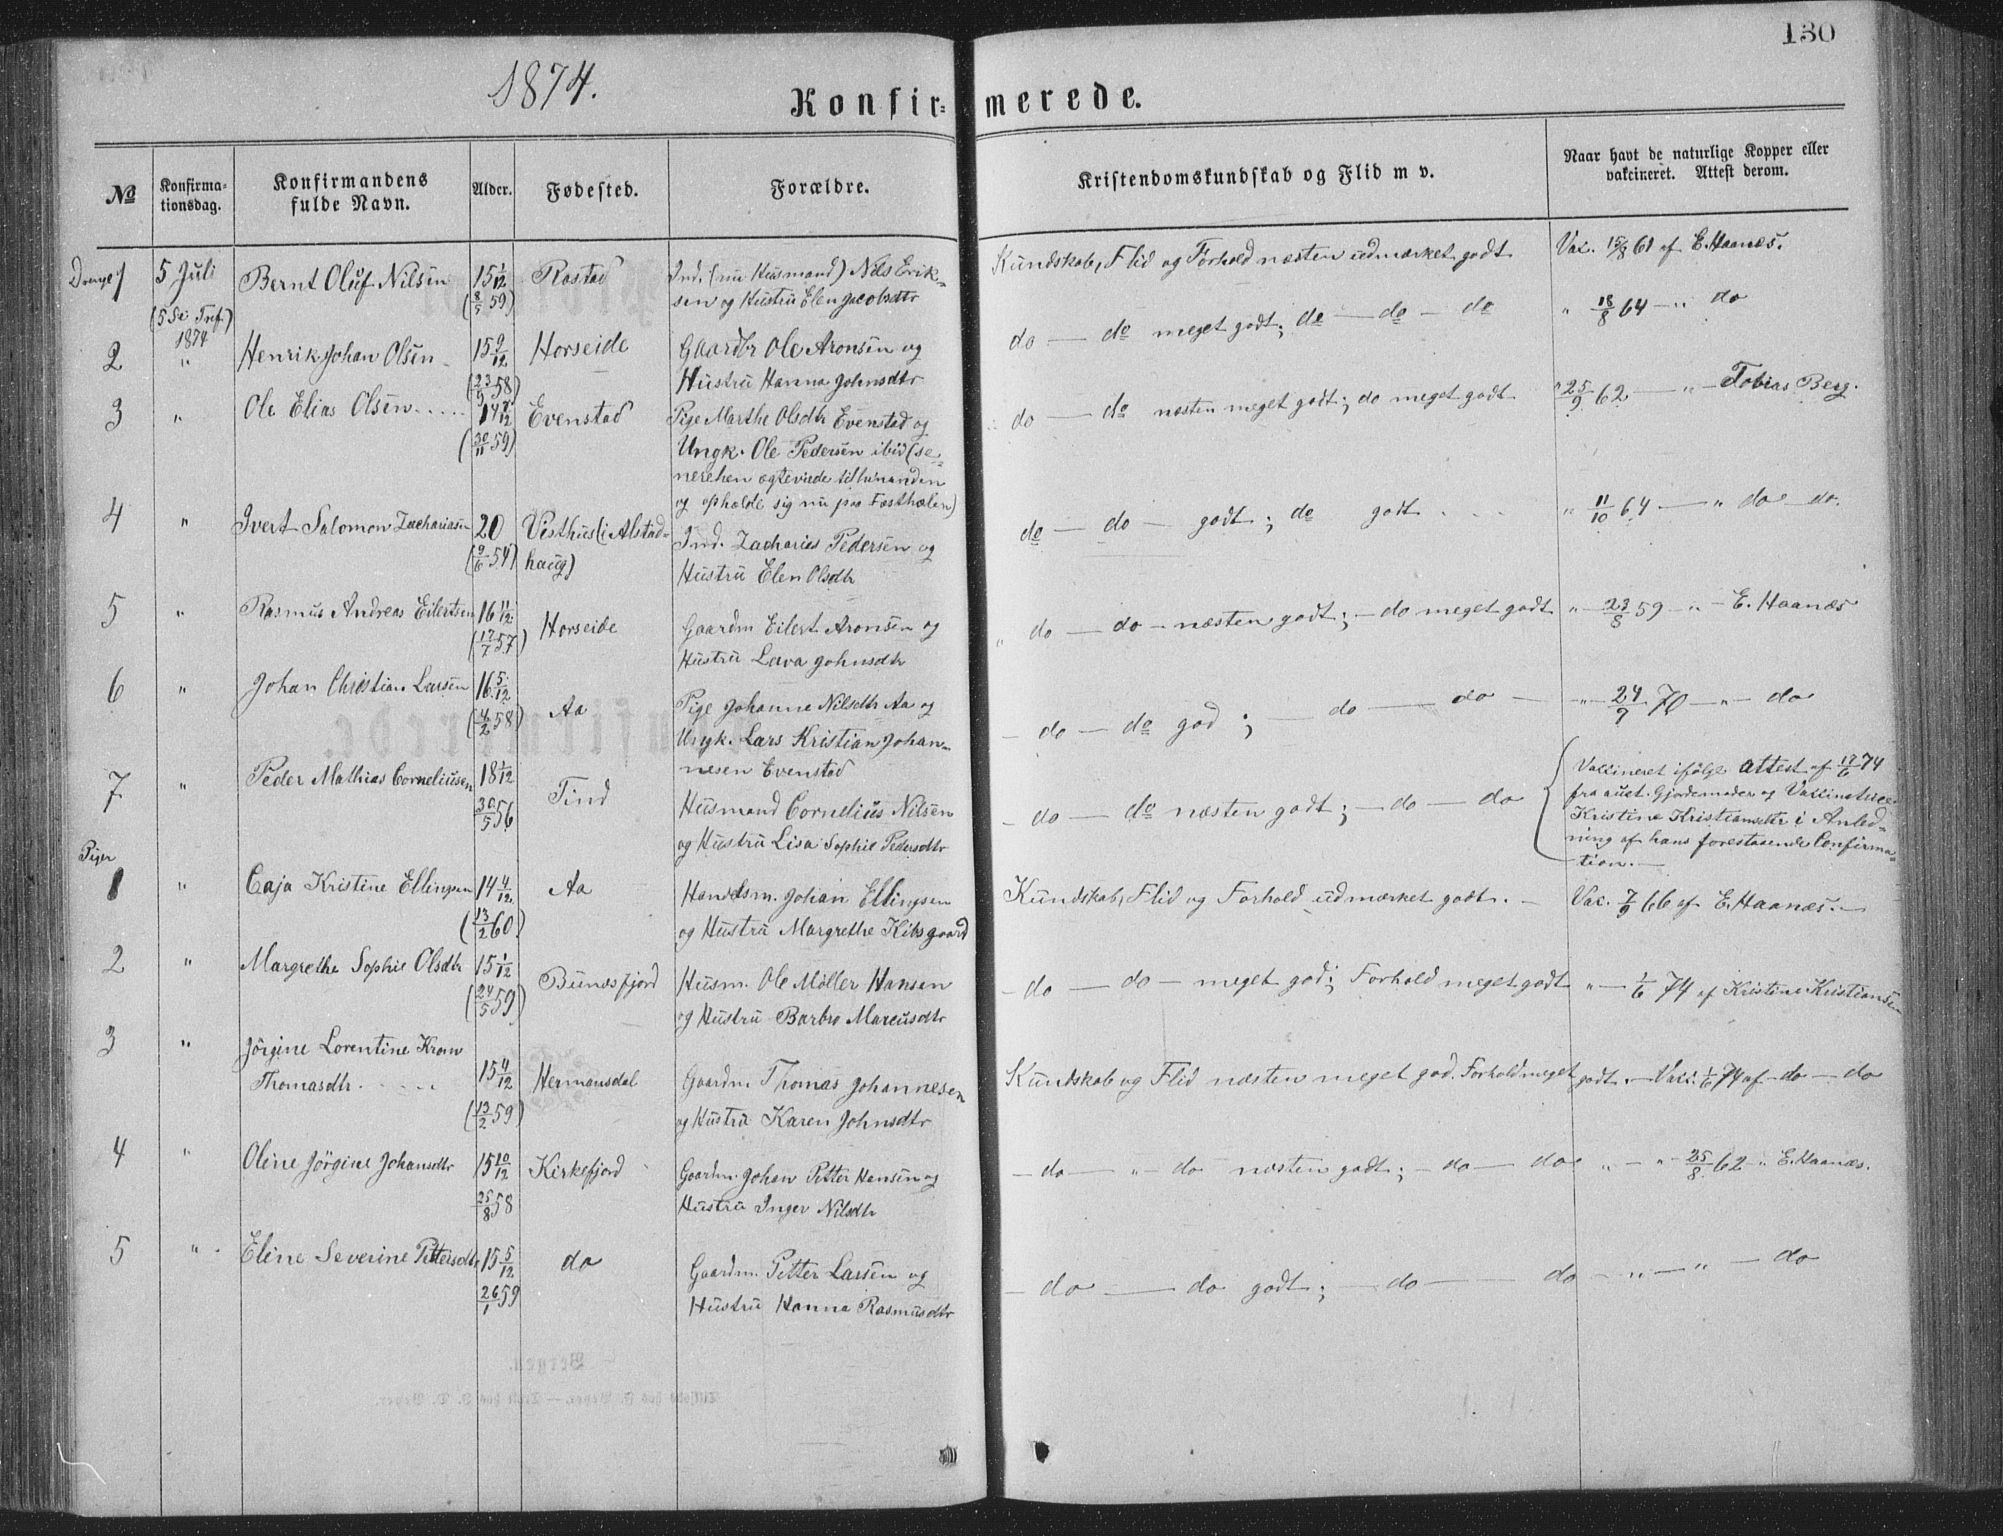 130
1874.
Konfir-merede.
№
Konfirma-
tionsdag.
Konfirmandens
fulde Navn.
Alder.
Fødested.
Forældre.
Kristendomskundskab og Flid m v.
Naar havt de naturlige Kopper eller
vakcineret. Attest derom.
Drenge 1
5 Juli
(5 Se: Tref.)
1874
Bernt Oluf Nilsen
15 1/12
(8/5 59)
Rostad
Ind. (nu Husmand) Nils Erik-
sen og Hustru Elen Jacobsdtr
Kundskab, Flid og Forhold næsten udmærket godt
Vac. 15/8 61 af E. Haanæs.
2
"
Henrik Johan Olsen
15 9/12
(23/9 58)
Horseide
Gaardbr Ole Aronsen og
Hustru Hanna Johnsdtr
do — do meget godt; do — do — do
" 18/8 64 — " do
3
"
Ole Elias Olsen
14 7/12
(30/11 59)
Evenstad
Pige Marthe Olsdtr Evenstad og
Ungk. Ole Pedersen ibid (se-
nerehen ægteviede til hinanden
og opholde sig nu paa Festhælen)
do — do næsten meget godt; do meget godt
" 25/9 62 — " — Tobias Berg.
4
"
Ivert Salomon Zachariasen
20
(9/6 54)
Visthus (i Alstad-
haug)
Ind. Zacharias Pedersen og
Hustru Elen Olsdtr
do — do — godt; do godt
" 11/10 64 — " do do.
5
"
Rasmus Andreas Eilertsen
16 11/12
(17/7 57)
Horseide
Gaardm Eilert Aronsen og
Hustru Lava Johnsdtr
" do — do — næsten godt; — do meget godt
" 23/8 59 — " — E. Haanæs
6
"
Johan Christian Larsen
16 5/12
(4/2 58)
Aa
Pige Johanne Nilsdtr Aa og
Ungk. Lars Kristian Johan-
nesen Evenstad
— do — do god; — do — do —
" — 24/9 70 — " — do
7
"
Peder Mathias Corneliusen
18 1/12
30/5 56
Tind
Husmand Cornelius Nilsen
og Hustru Lisa Sophie Pedersdtr
— do — do næsten godt; — do — do
Vaccineret ifølge attest af 17/6 74
fra aust. Gjordemoder og Vaccinatrice
Kristine Kristiansdtr i Anled-
ning af hans forestaaende Confirma-
tion.
Piger
1
"
Caja Kristine Ellingsen
14 4/12
(13/2 60)
Aa
Handelsm. Johan Ellingsen
og Hustru Margrethe Kibsgaard
Kundskab, Flid og Forhold udmærket godt. —
Vac. 7/9 66 af E. Haanæs. —
2
"
Margrethe Sophie Olsdtr
15 1/12
(24/5 59)
Bunesfjord
Husm. Ole Møller Hansen
og Hustru Barbro Marcusdtr
— do — do — meget god; Forhold meget godt
" — 1/6 74 af Kristine Kristiansen
3
"
Jörgine Lorentine Kron
Thomasdtr.
15 4/12
(13/2 59)
Hermansdal
Gaardm Thomas Johannesen
og Hustru Karen Johnsdtr
Kundskab og Flid næsten meget god. Forhold meget godt. —
Vacc. 1/6 74 af — do — do
4
"
Oline Jörgine Johansdtr
15 10/12
25/8 58
Kirkefjord
Gaardm. Johan Petter Hansen og
Hustru Inger Nilsdtr
— do — " — do næsten godt; — do — do
" — " — 25/8 62 " E. Haanæs.
5
"
Eline Severine Pettersdtr
15 5/12
26/1 59
do
Gaardm. Petter Larsen og
Hustru Hanna Rasmusdtr
— do — do godt; — do — do
— " — " — do